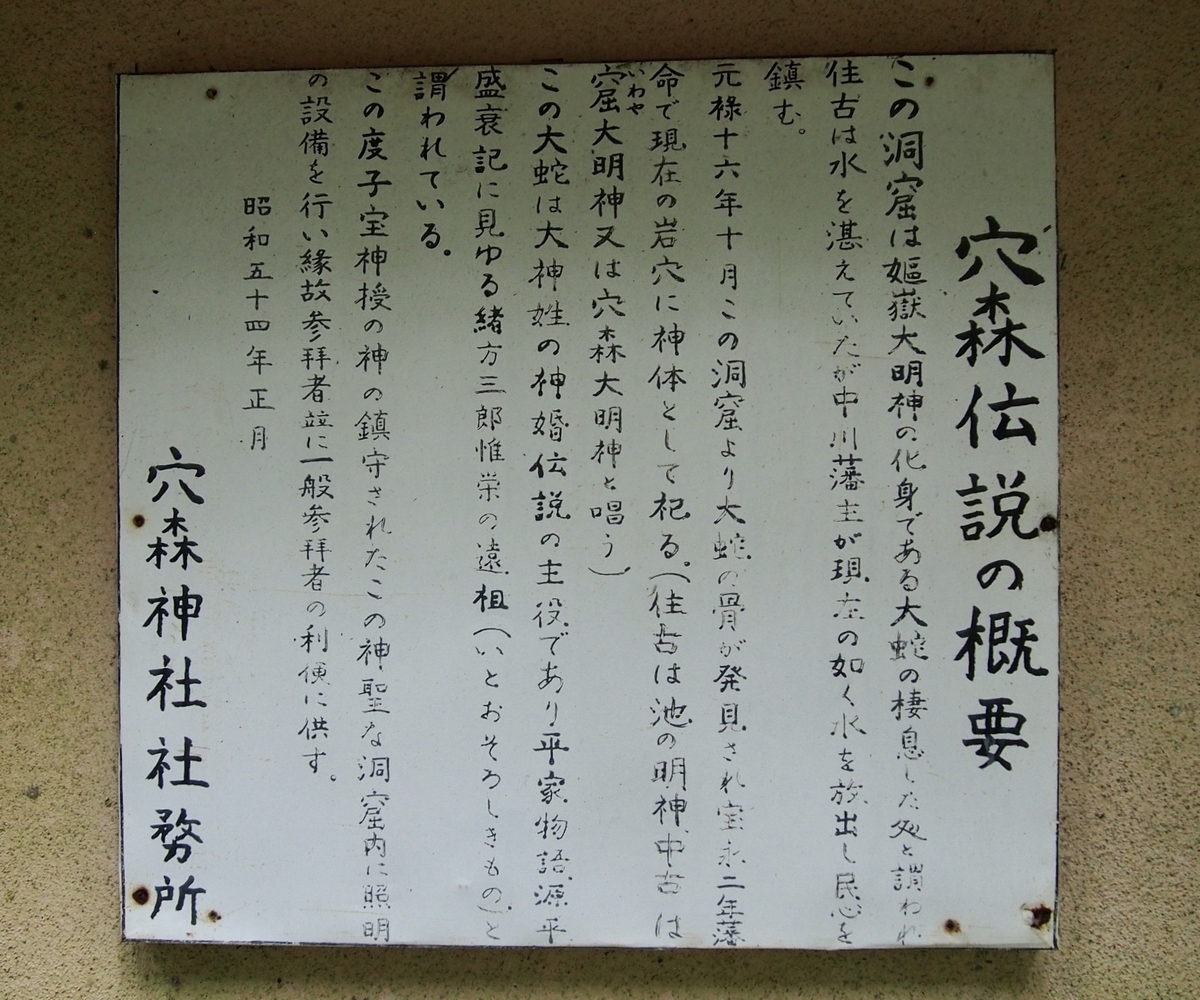 穴森伝説の概要
この洞窟は嫗嶽大明神の化身である大蛇の棲息した処と謂われ
往古は水を湛えていたが中川藩主が現在の如く水を放出し民心を
鎮む。
元禄十六年十月この洞窟より大蛇の骨が発見され宝永二年藩
命で現在の岩穴に神体として祀る。(往古は池の明神中古は
窟大明神又は穴森大明神と唱う)
いわや
この大蛇は大神姓の神婚伝説の主役であり平家物語源平
盛衰記に見ゆる緒方三郎惟栄の遠祖(いとおそろしきもの)と
謂われている。
この度子宝神授の神の鎮守されたこの神聖な洞窟内に照明
の設備を行い縁故参拝者並に一般参拝者の利便に供す。
昭和五十四年正月
穴森神社社務所